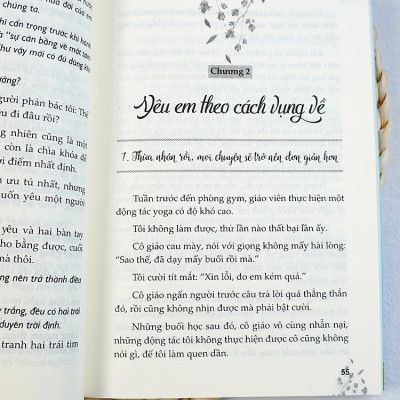 chúng ta.
hỉ cẩn trọng trước khi hành
là "sự cân bằng về mặt tâm
hư vậy mới có đủ dũng khí
ưởng?
gười phản bác tôi: Thế
u đi đâu rồi?
ng nhiên cũng là một
còn là chìa khóa để
i điểm nhất định.
n ưu tú nhất, nhưng
uốn yêu một người
yêu và hai bàn tay
ho bằng được, cuối
mà thôi.
ng nên trả thành điều
trắng, đều có hai trái
duyên trời định.
tranh hai trái tim
Chương 2
Yêu em theo cách vụng về
1. Thừa nhận rồi, mọi chuyện sẽ trở nên đơn giản hơn
Tuần trước đến phòng gym, giáo viên thực hiện một
động tác yoga có độ khó cao.
Tôi không làm được, thử lần nào thất bại lần ấy.
Cô giáo cau mày, nói với giọng không mấy hài lòng:
"Sao thế, đã dạy mấy buổi rồi mà."
Tôi cười tít mắt: "Xin lỗi, do em kém quá."
Cô giáo ngẩn người trước câu trả lời quá thẳng thắn
đó, rồi cũng không nhịn được mà phải bật cười.
Những buổi học sau đó, cô giáo vô cùng nhẫn nại,
những động tác tôi không thực hiện được cô cũng không
nói gì, để tôi làm quen dần.
55